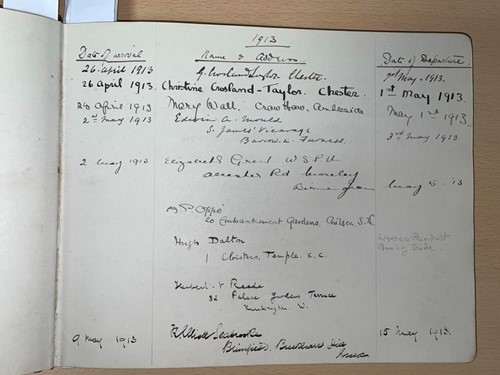 1913
Date of arrival Name & Address Date of Departure
26 April 1913 G. Crosland Taylor Chester. 1st May. 1913.
26 April 1913. Christine Crosland-Taylor. Chester. 1st May 1913.
26 April 1913 Mary Wall. Ambleside May 1st 1913.
2nd May 1913 Edwin A. Mould
S. James' Vicarage 3rd May 1913
Barrow-in-Furness.
2 May 1913 Elizabeth Grant W.S.P.U.
Rd Moseley
Birmingham May 5 '13
P. Oppé
20 Embankment Gardens, Chelsea. S.W.
Hugh Dalton
1 Cloisters, Temple. E.C.
Herbert V Reade
32 Palace Gardens Terrace
Kensington W.
9 May 1913 R. Elliott Seabrooke 15 May 1913.
Burdhams Hill